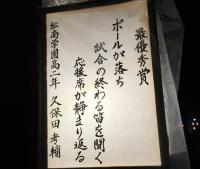 最優秀賞
ボールが落ち
試合の終わる笛を聞く
応援席が静まり返る
松商学園高二年 久保田 孝輔